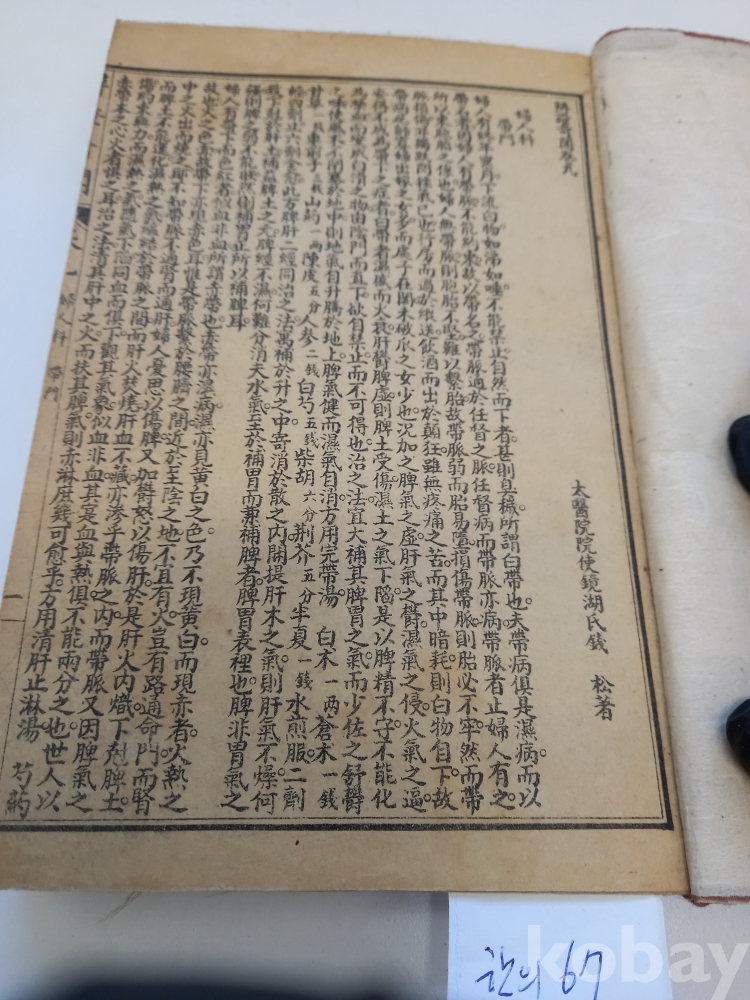 太醫院院使鏡湖氏錢 松著
婦人科
帶門
婦人有終年累月下流白物如涕如唾不能禁止自然而下者甚則臭穢所謂白帶也夫帶病俱是濕病而以
帶名者因婦人有帶脈不能約束故以帶名之帶脈通於任督之脈任督病而帶脈亦病帶脈者止婦人有之
所以約束胞胎之係也婦人無帶脈則胞胎不堅難以繫胎故帶脈弱而胎易墮損傷帶脈則胎必不牢然而帶
脈損傷非獨跌閃挫氣已也行房而過於縱送飲酒而出於顛狂雖無疼痛之苦而其中暗耗則白物自下故
帶病尼師寡婦出嫁之女多而處子在閨未破瓜之女少也况加之脾氣之虛肝氣之鬱濕氣之侵火氣之逼
安得不成為帶下之症者白帶者濕盛而火衰肝鬱脾虛則脾土受傷濕土之氣下陷是以脾精不守不能化
為榮血而變成白滑之物由陰門而直下欲自禁止而不可得也治之法宜大補其脾胃之氣而少佐之舒鬱
之味使風木不閉塞於地中則地氣自升騰於地上脾氣健而濕氣自消方用完帶湯 白木一兩蒼木一錢
甘草一錢車前子三錢山約一兩陳皮五分人參二錢白芍五錢柴胡六分荆芥五分半夏一錢水煎服二劑
輕四劑止六劑全愈此方脾肝二經同治之法寓補於升之中寄消於散之内開提肝木之氣則肝氣不燥何
致下尅脾土補益脾土之元脾經不濕何難分消夫水氣至於補胃而兼補脾者脾胃表裡也脾非胃氣之
強則脾之弱不能旺然則補胃正所以補脾耳
婦人有帶下而色紅者似血非血所謂赤帶也赤帶亦濕病濕亦見黃白之色乃不現黃白而現赤者火熱之
故也火之色赤故帶下亦現赤色耳惟是帶脈繫於腰臍之間近於至陰之地不宜有火豈有路通命門而腎
中之火出而燒之耶不知帶脈不通腎而通肝婦人憂思以傷脾又加鬱怒以傷肝於是肝火内熾下尅脾土
而脾土不能運化濕熱之氣蘊結於帶脈之間而肝火焚燒肝血不藏亦滲乎帶脈之内而帶脈又因脾氣之
傷約束無力而濕熱之氣隨氣下陷同血而俱下觀其氣象似血非血其是血與熱俱不能兩分之也世人以
赤帶木之心火者悞之耳治之法清其肝中之火而扶其脾氣則赤淋庶幾可愈乎方用清肝止淋湯 芍藥
婦人科 帶門
一
한의 67
kobay